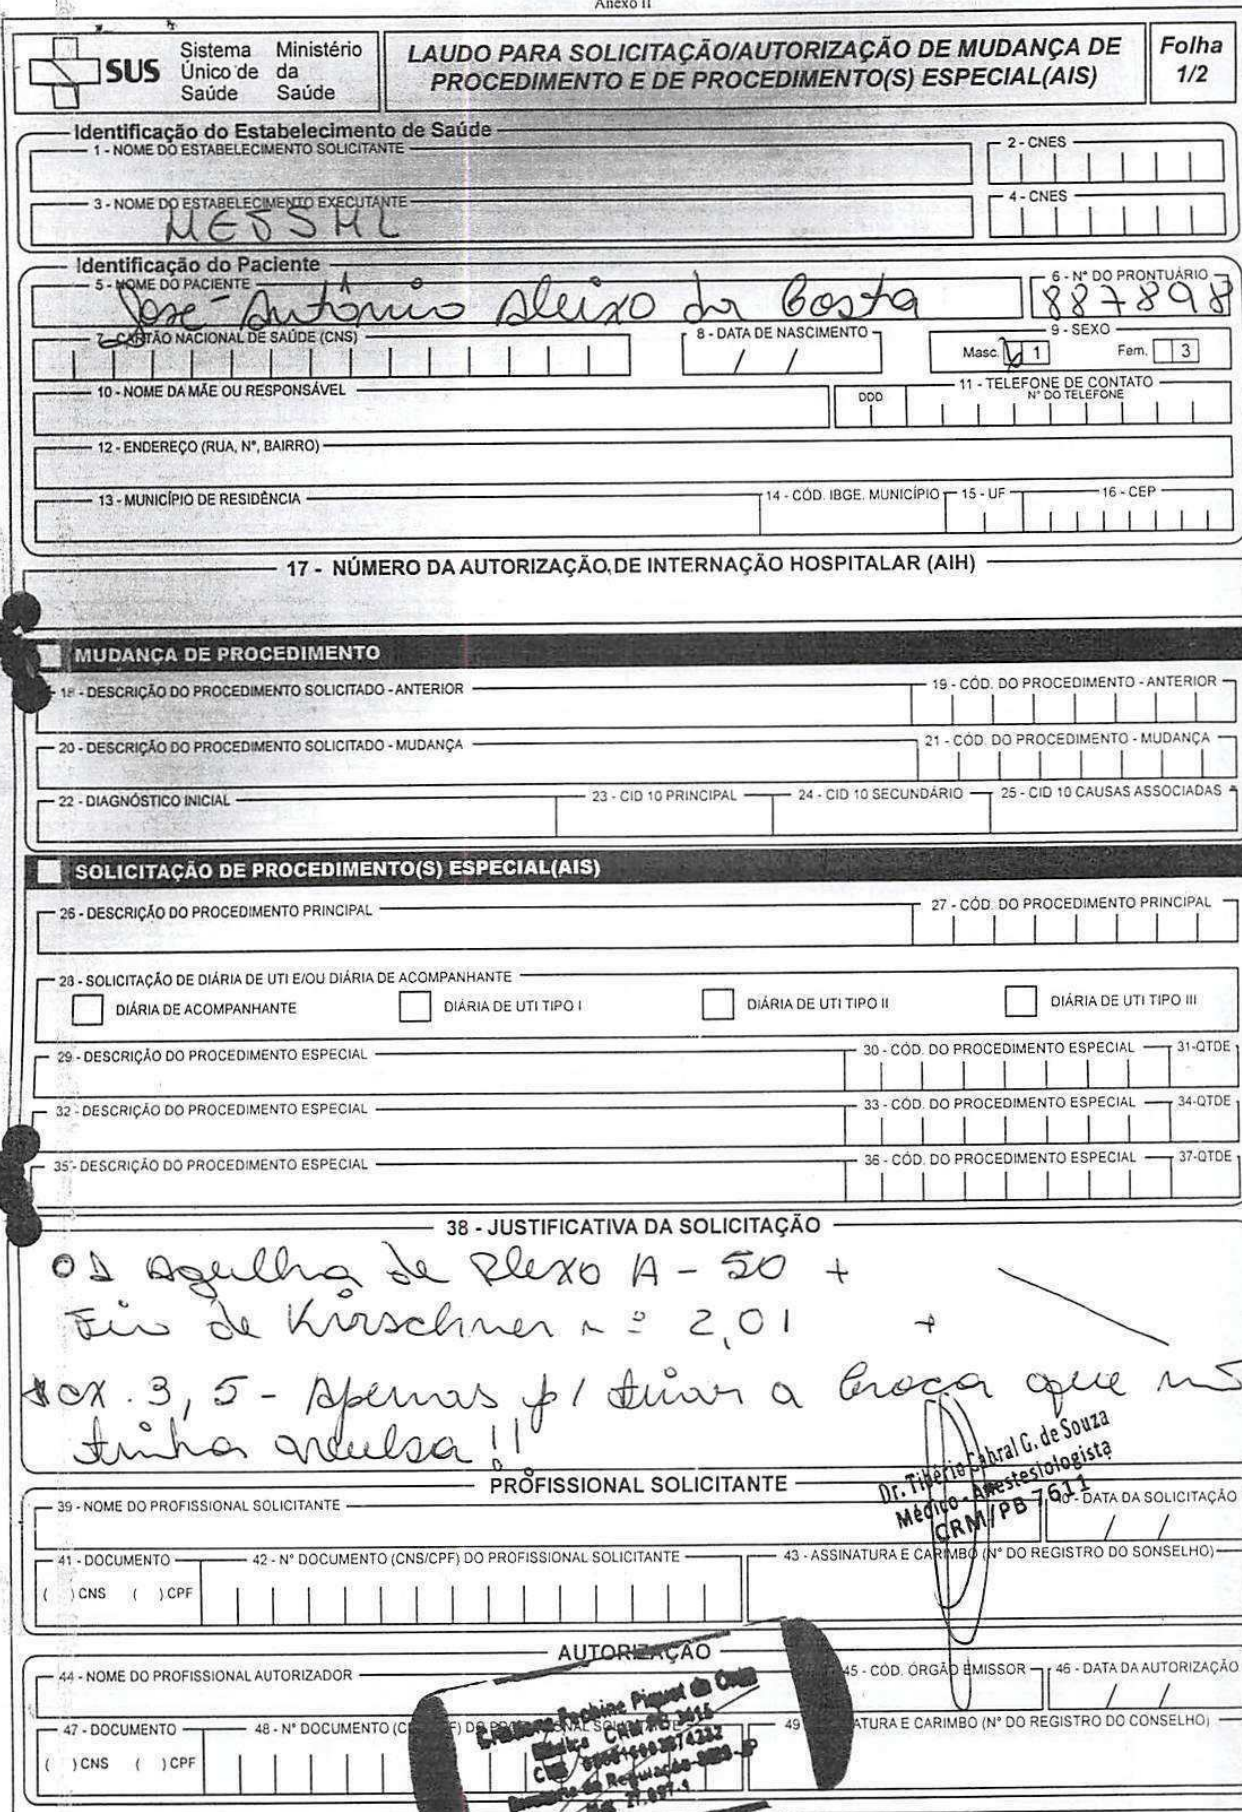 Anexo II
SUS Sistema Único de Saúde Ministério da Saúde
LAUDO PARA SOLICITAÇÃO/AUTORIZAÇÃO DE MUDANÇA DE PROCEDIMENTO E DE PROCEDIMENTO(S) ESPECIAL(AIS)
Folha 1/2
Identificação do Estabelecimento de Saúde
1 - NOME DO ESTABELECIMENTO SOLICITANTE
2 - CNES
3 - NOME DO ESTABELECIMENTO EXECUTANTE
4 - CNES
Identificação do Paciente
5 - NOME DO PACIENTE
José Antônio Aleixo da Costa
6 - N° DO PRONTUÁRIO
887898
7 - CARTÃO NACIONAL DE SAÚDE (CNS)
8 - DATA DE NASCIMENTO
/ /
9 - SEXO
Masc. 1 Fem. 3
10 - NOME DA MÃE OU RESPONSÁVEL
11 - TELEFONE DE CONTATO
DDD N° DO TELEFONE
12 - ENDEREÇO (RUA, N°, BAIRRO)
13 - MUNICÍPIO DE RESIDÊNCIA
14 - CÓD. IBGE. MUNICÍPIO
15 - UF
16 - CEP
17 - NÚMERO DA AUTORIZAÇÃO DE INTERNAÇÃO HOSPITALAR (AIH)
MUDANÇA DE PROCEDIMENTO
18 - DESCRIÇÃO DO PROCEDIMENTO SOLICITADO - ANTERIOR
19 - CÓD. DO PROCEDIMENTO - ANTERIOR
20 - DESCRIÇÃO DO PROCEDIMENTO SOLICITADO - MUDANÇA
21 - CÓD. DO PROCEDIMENTO - MUDANÇA
22 - DIAGNÓSTICO INICIAL
23 - CID 10 PRINCIPAL
24 - CID 10 SECUNDÁRIO
25 - CID 10 CAUSAS ASSOCIADAS
SOLICITAÇÃO DE PROCEDIMENTO(S) ESPECIAL(AIS)
26 - DESCRIÇÃO DO PROCEDIMENTO PRINCIPAL
27 - CÓD. DO PROCEDIMENTO PRINCIPAL
28 - SOLICITAÇÃO DE DIÁRIA DE UTI E/OU DIÁRIA DE ACOMPANHANTE
DIÁRIA DE ACOMPANHANTE
DIÁRIA DE UTI TIPO I
DIÁRIA DE UTI TIPO II
DIÁRIA DE UTI TIPO III
29 - DESCRIÇÃO DO PROCEDIMENTO ESPECIAL
30 - CÓD. DO PROCEDIMENTO ESPECIAL
31-QTDE
32 - DESCRIÇÃO DO PROCEDIMENTO ESPECIAL
33 - CÓD. DO PROCEDIMENTO ESPECIAL
34-QTDE
35 - DESCRIÇÃO DO PROCEDIMENTO ESPECIAL
36 - CÓD. DO PROCEDIMENTO ESPECIAL
37-QTDE
38 - JUSTIFICATIVA DA SOLICITAÇÃO
01 Agulha de Plexo A - 50 +
Fio de Kirschner nº 2,01 +
cx. 3,5 - Apenas p/ tirar a broca que não
tinha avulsa!!
PROFISSIONAL SOLICITANTE
Dr. Tibério Cabral G. de Souza
Médico - Anestesiologista
CRM/PB 7611
39 - NOME DO PROFISSIONAL SOLICITANTE
40 - DATA DA SOLICITAÇÃO
/ /
41 - DOCUMENTO
( ) CNS ( ) CPF
42 - N° DOCUMENTO (CNS/CPF) DO PROFISSIONAL SOLICITANTE
43 - ASSINATURA E CARIMBO (N° DO REGISTRO DO SONSELHO)
AUTORIZAÇÃO
44 - NOME DO PROFISSIONAL AUTORIZADOR
45 - CÓD. ÓRGÃO EMISSOR
46 - DATA DA AUTORIZAÇÃO
/ /
47 - DOCUMENTO
( ) CNS ( ) CPF
48 - N° DOCUMENTO
49 ATURA E CARIMBO (N° DO REGISTRO DO CONSELHO)